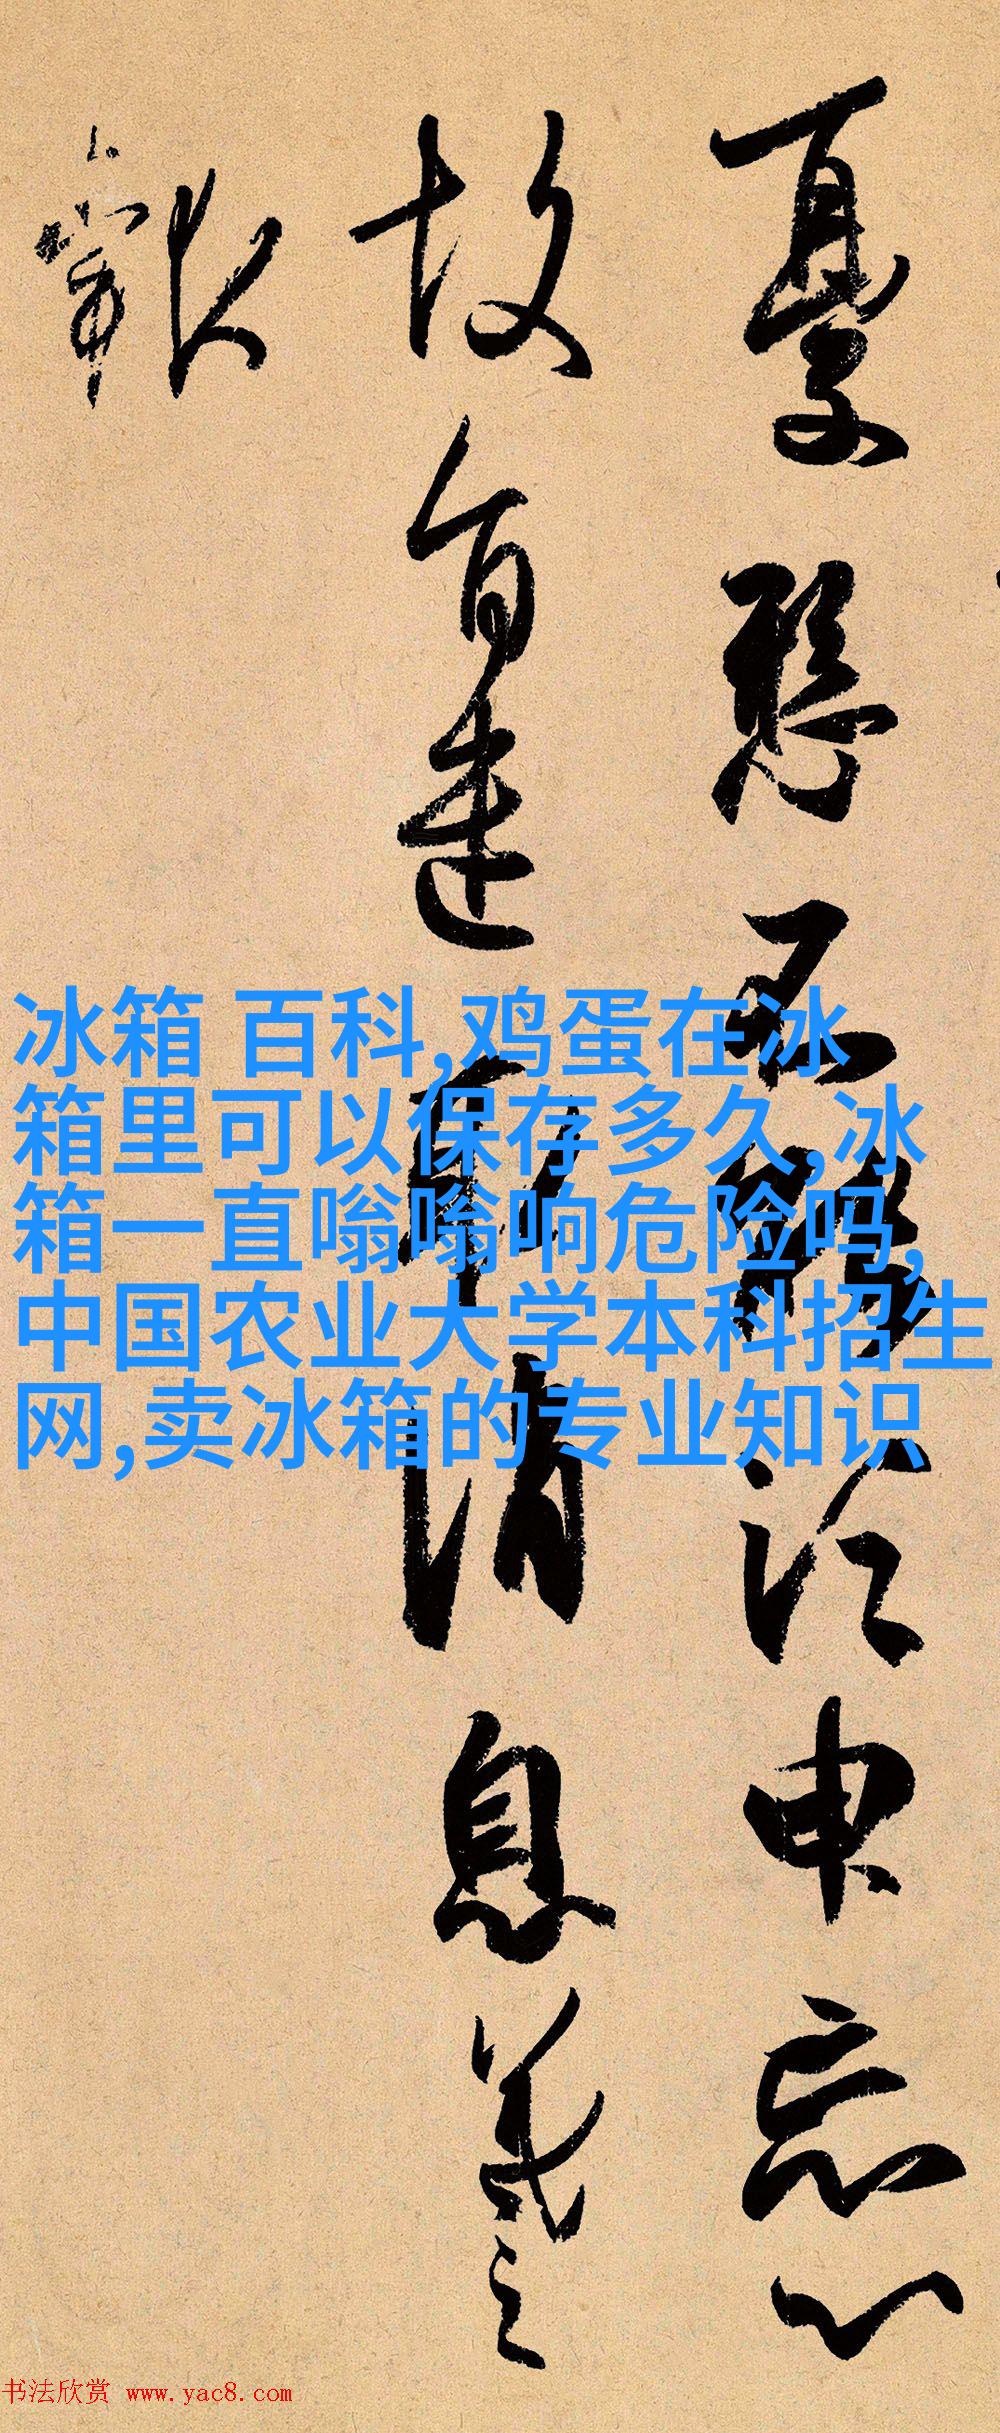 憂懸不能須申忘心
故旨遣取消息羲之
報
冰箱 百科,鸡蛋在冰
箱里可以保存多久,冰
箱一直嗡嗡响危险吗,
中国农业大学本科招生
网,卖冰箱的专业知识
书法欣赏 www.yac8.com